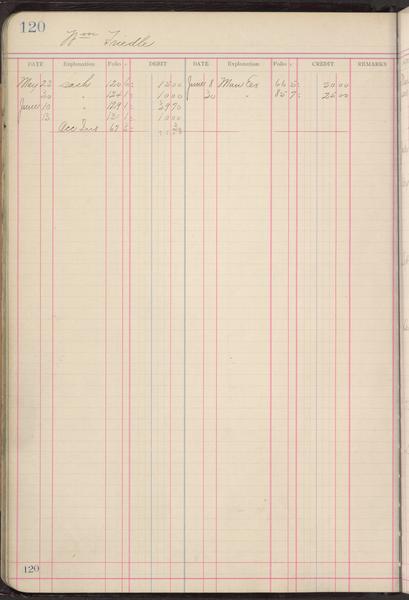 120
Wm Tredle
DATE Explanation Folio c DEBIT DATE Explanation Folio c CREDIT REMARKS
May 22 Cash 120 1500 June 8 Man Ex 66 2000
30 " 124 1 1000 20 " 85 7 2500
June 10 " 129 1
13 131 1 1000
Acc Ins 67
120